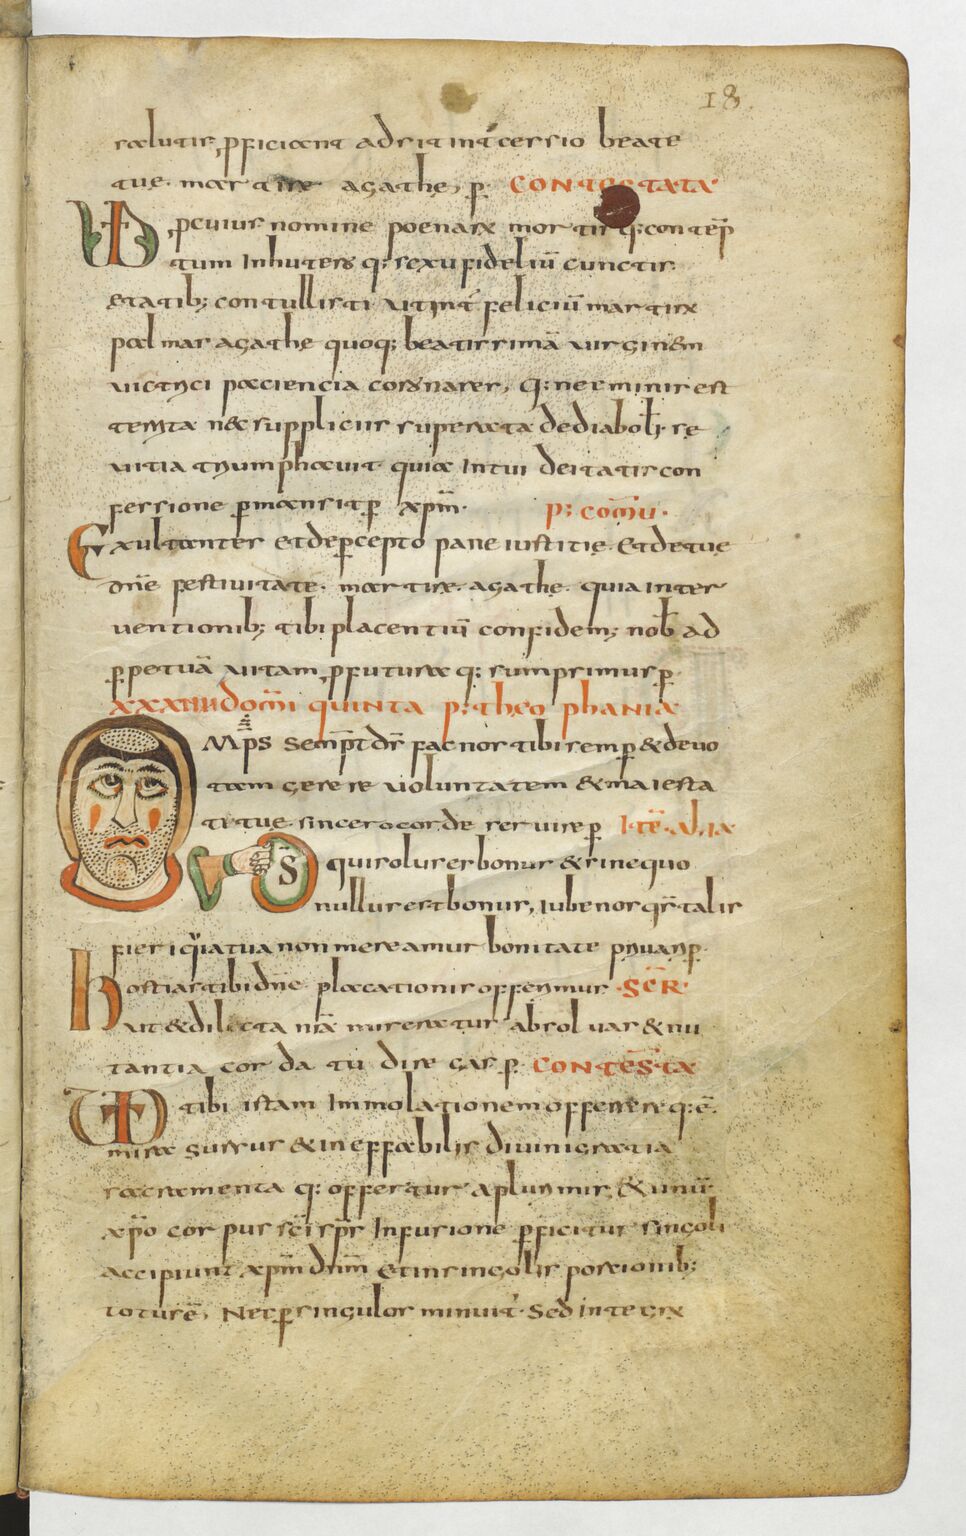 18.
salutis, proficiant adsit int̄cessio beate
tuę. martyrae agathę, p̲. CONTESTATA
VD, p cuius nomine poenarx mortisq; contēp
tum Inhuteroq; sexu fideliū cunctis
ętatib; contullisti vt int̄ feliciū martirx
palmar agathę quoq; beatissimā virginēm
victrici paciencia coronares, q: nec minis est
temta nec suppliciis superata de diaboli. sę
vitia triumphavit quia In tui deitatis con
fessione p̲mansit p̲ xp̄m.      p; com̄u.
Exultanter et de p̲cepto pane iustitię. Et de tuę
dn̄e festivitate. martirx. agathę. quia inter
ventionib; tibi placentiū confidem; nob̄ ad
p̲petuā vitam, p futurx q; sumpsimus p̲.
XXXIIII dom̄i quinta p; theophania
OMP̄S SEMP̄T dr̄ fac nos tibi semp̲ & devo
tam gerere voluntatem & maiesta
ti tuę sincero corde servire p̲ Itē alia
D̄S qui solus es bonus & sine quo
nullus est bonus, iube nos qs̄ talis
fieri q̄i a tua non mereamur bonitate privari p̲.
hostias tibi dn̄e placationis offerimus. SCR̄.
aut & dilicta nr̄a miseratus absolvas & nu
tantia corda tu dirigas p̲. CONTESTA
VD tibi istam Immolationem offerre q; ē.
mirx sursus & ineffabilis divini gratia
sacramenta q; offertur a plurimis, & unū
xp̄o corpus sc̄i sp̄s Infusione p̲ficitur singoli
accipiunt xp̄m dn̄m et in singolis porcionib;
totus ē, Nec p̲ singulos minuit̄. Sed integrx